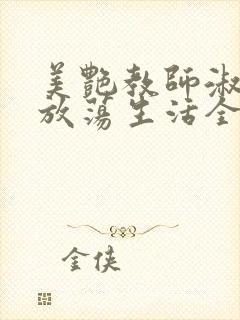 美艷教師淑
放蕩生活全
金俠